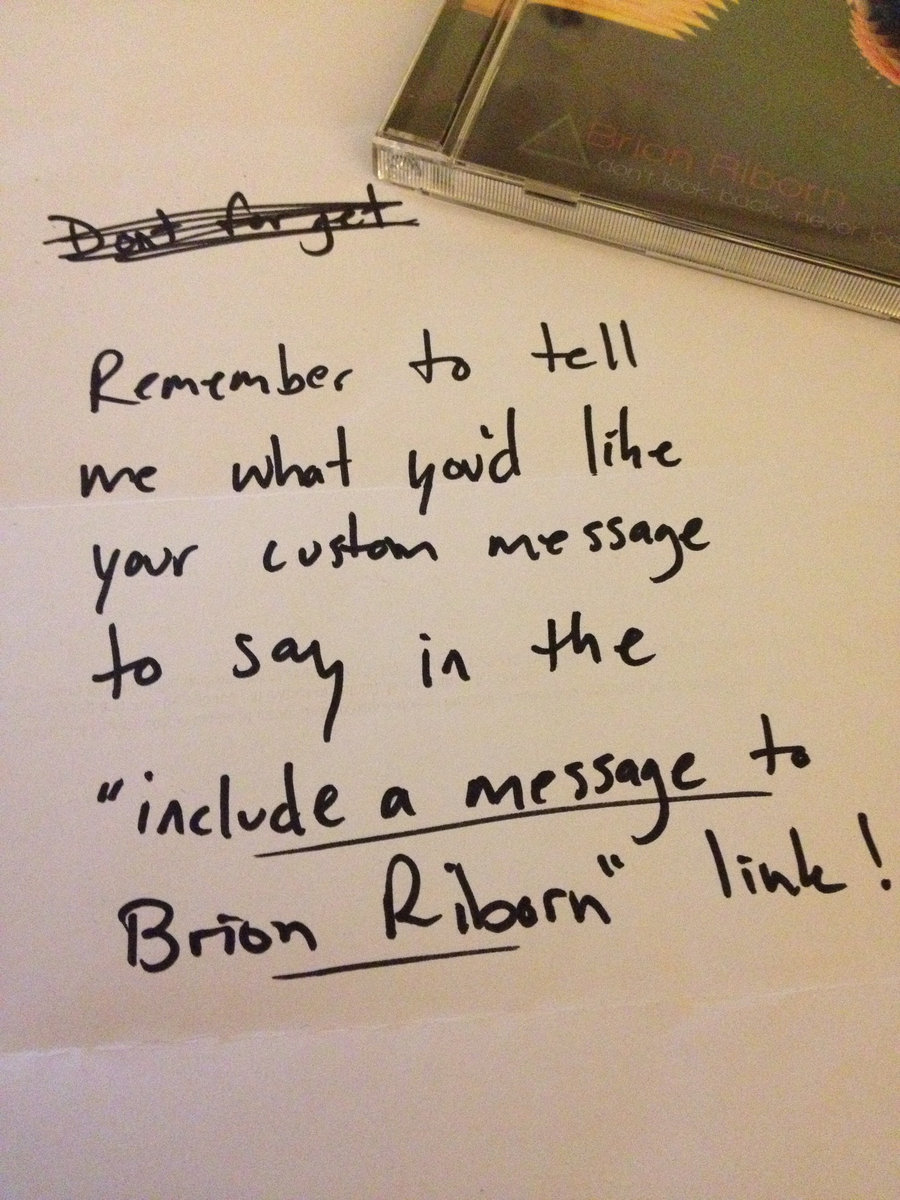 Brion Riborn
don't look back, never
Dont forget
Remember to tell
me what you'd like
your custom message
to say in the
"include a message to
Brion Riborn" link!